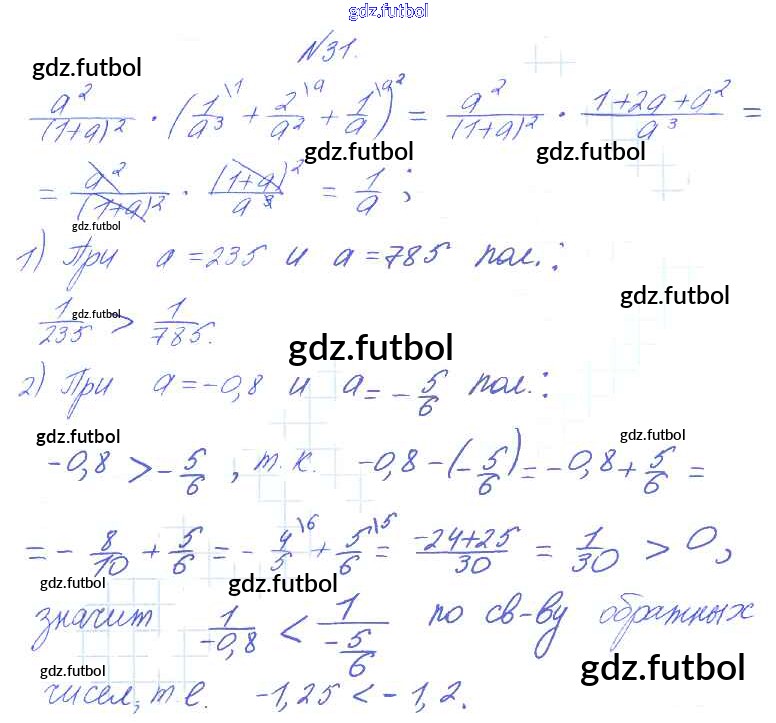 gdz.futbol
N31.
gdz.futbol
a²/(1+a)² · (1/a³ \1 + 2/a² \a + 1/a \a²) = a²/(1+a)² · (1+2a+a²)/a³ =
gdz.futbol gdz.futbol
= a²/(1+a)² · (1+a)²/a³ = 1/a ;
gdz.futbol
1) При a = 235 и a = 785 пол.:
gdz.futbol
1/235 > 1/785.
gdz.futbol
gdz.futbol
2) При a = -0,8 и a = -5/6 пол.:
gdz.futbol gdz.futbol
-0,8 > -5/6 , т.к. -0,8 - (-5/6) = -0,8 + 5/6 =
= - 8/10 + 5/6 = - 4/5 \6 + 5/6 \5 = (-24+25)/30 = 1/30 > 0,
gdz.futbol gdz.futbol
значит 1/-0,8 < 1/(-5/6) по св-ву обратных
gdz.futbol gdz.futbol
чисел, т.е. -1,25 < -1,2.